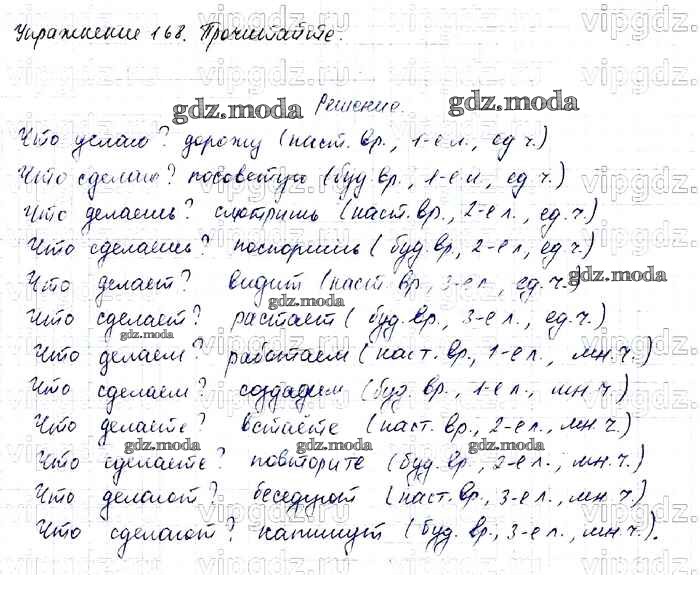 Упражнение 168. Прочитайте.
Решение.
Что делаю? дорожу (наст. вр., 1-е л., ед ч.)
Что сделаю? посоветую (буд вр., 1-е л, ед ч.)
Что делаешь? смотришь (наст. вр., 2-е л., ед. ч.)
Что сделаешь? поспоришь (буд. вр, 2-е л, ед. ч.)
Что делает? видит (наст. вр, 3-е л., ед. ч.)
Что сделает? растает (буд. вр., 3-е л., ед. ч.)
Что делаем? работаем (наст. вр, 1-е л., мн. ч.)
Что сделаем? создадим (буд. вр, 1-е л., мн ч.)
Что делаете? встаёте (наст. вр., 2-е л., мн. ч.)
Что сделаете? повторите (буд. вр, 2-е л., мн. ч.)
Что делают? беседуют (наст. вр., 3-е л., мн. ч.)
Что сделают? напишут (буд. вр., 3-е л., мн. ч.).
gdz.moda
gdz.moda
gdz.moda
gdz.moda
gdz.moda
gdz.moda
gdz.moda
gdz.moda
gdz.moda
vipgdz.